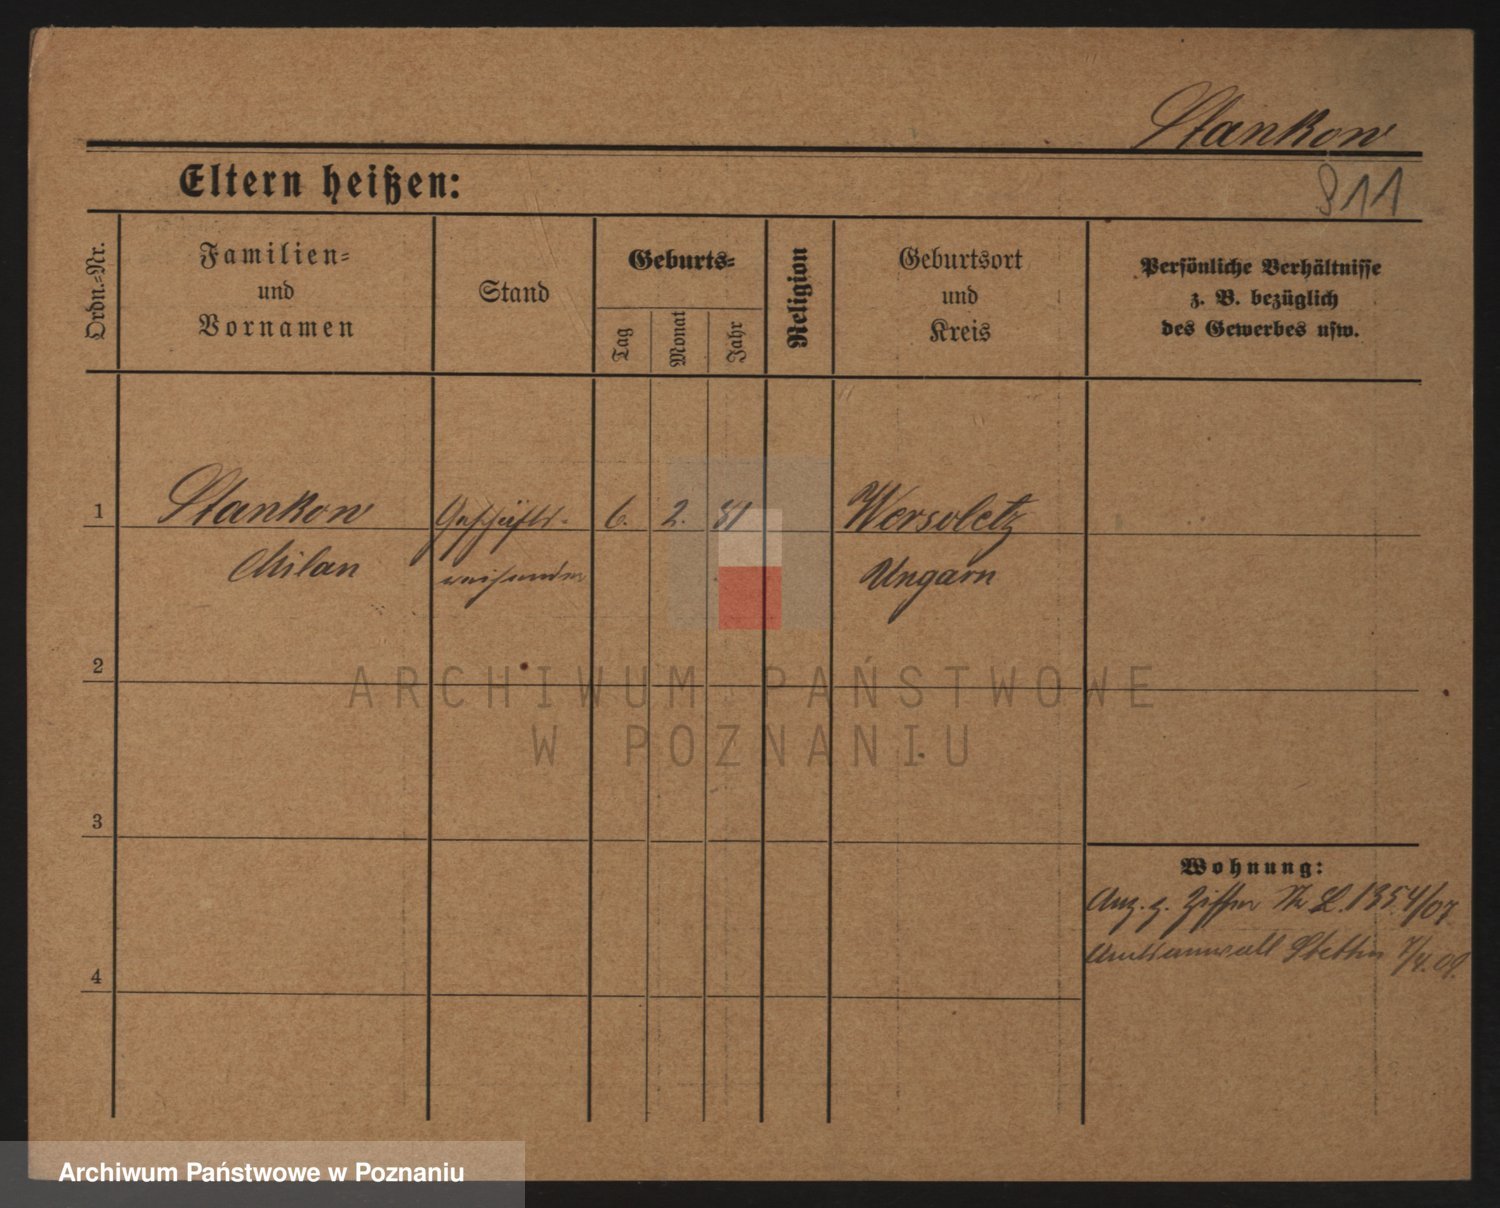 Stankow
Eltern heißen:
811
Ordn.-Nr.
Familien-
und
Vornamen
Stand
Geburts-
Tag
Monat
Jahr
Religion
Geburtsort
und
Kreis
Persönliche Verhältnisse
z. B. bezüglich
des Gewerbes usw.
1
Stankow
Geschäfts-
6.
2.
81
Wersoletz
Milan
reisender
Ungarn
2
ARCHIWUM PAŃSTWOWE
W POZNANIU
3
Wohnung:
Anz. z. Ziffer L. 1354/07
4
Amtsanwalt Stettin
Archiwum Państwowe w Poznaniu